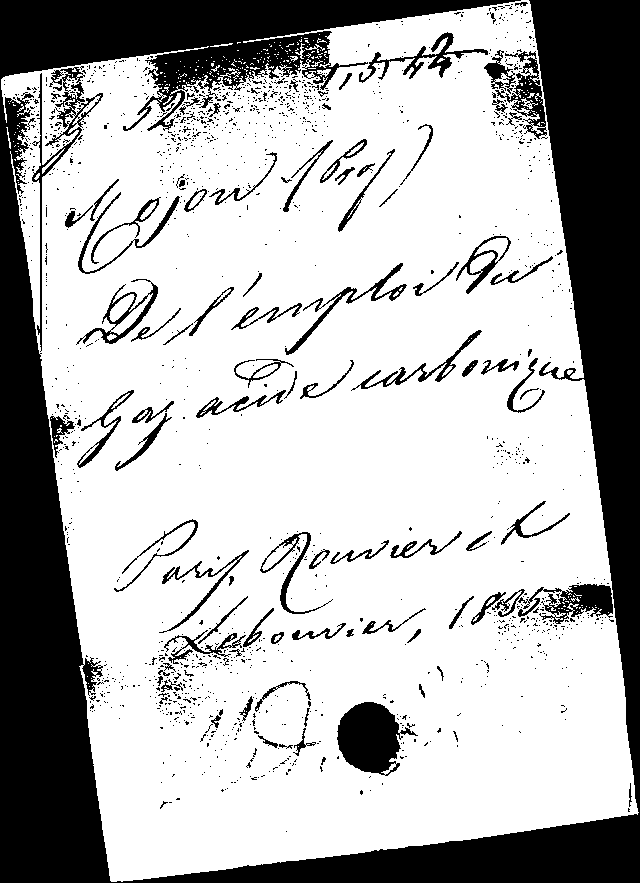 G. 52
1,5,42
Mojon (Prof)
De l'emploi du
Gaz acide carbonique
Paris, Rouvier et
Lebouvier, 1835